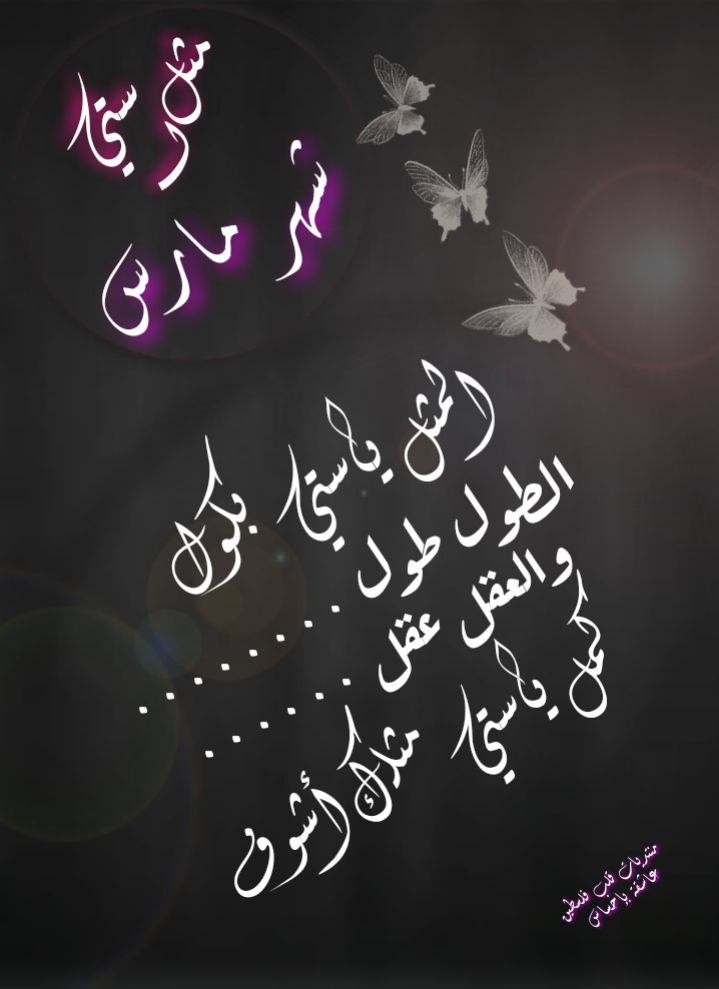 مثل ستي
شهر مارس
المثل يا ستي بكول
الطول طول ........
والعقل عقل ......
كمل يا ستي مثلك أشوف
منتديات قلب فلسطين
عاشقة بإحساس